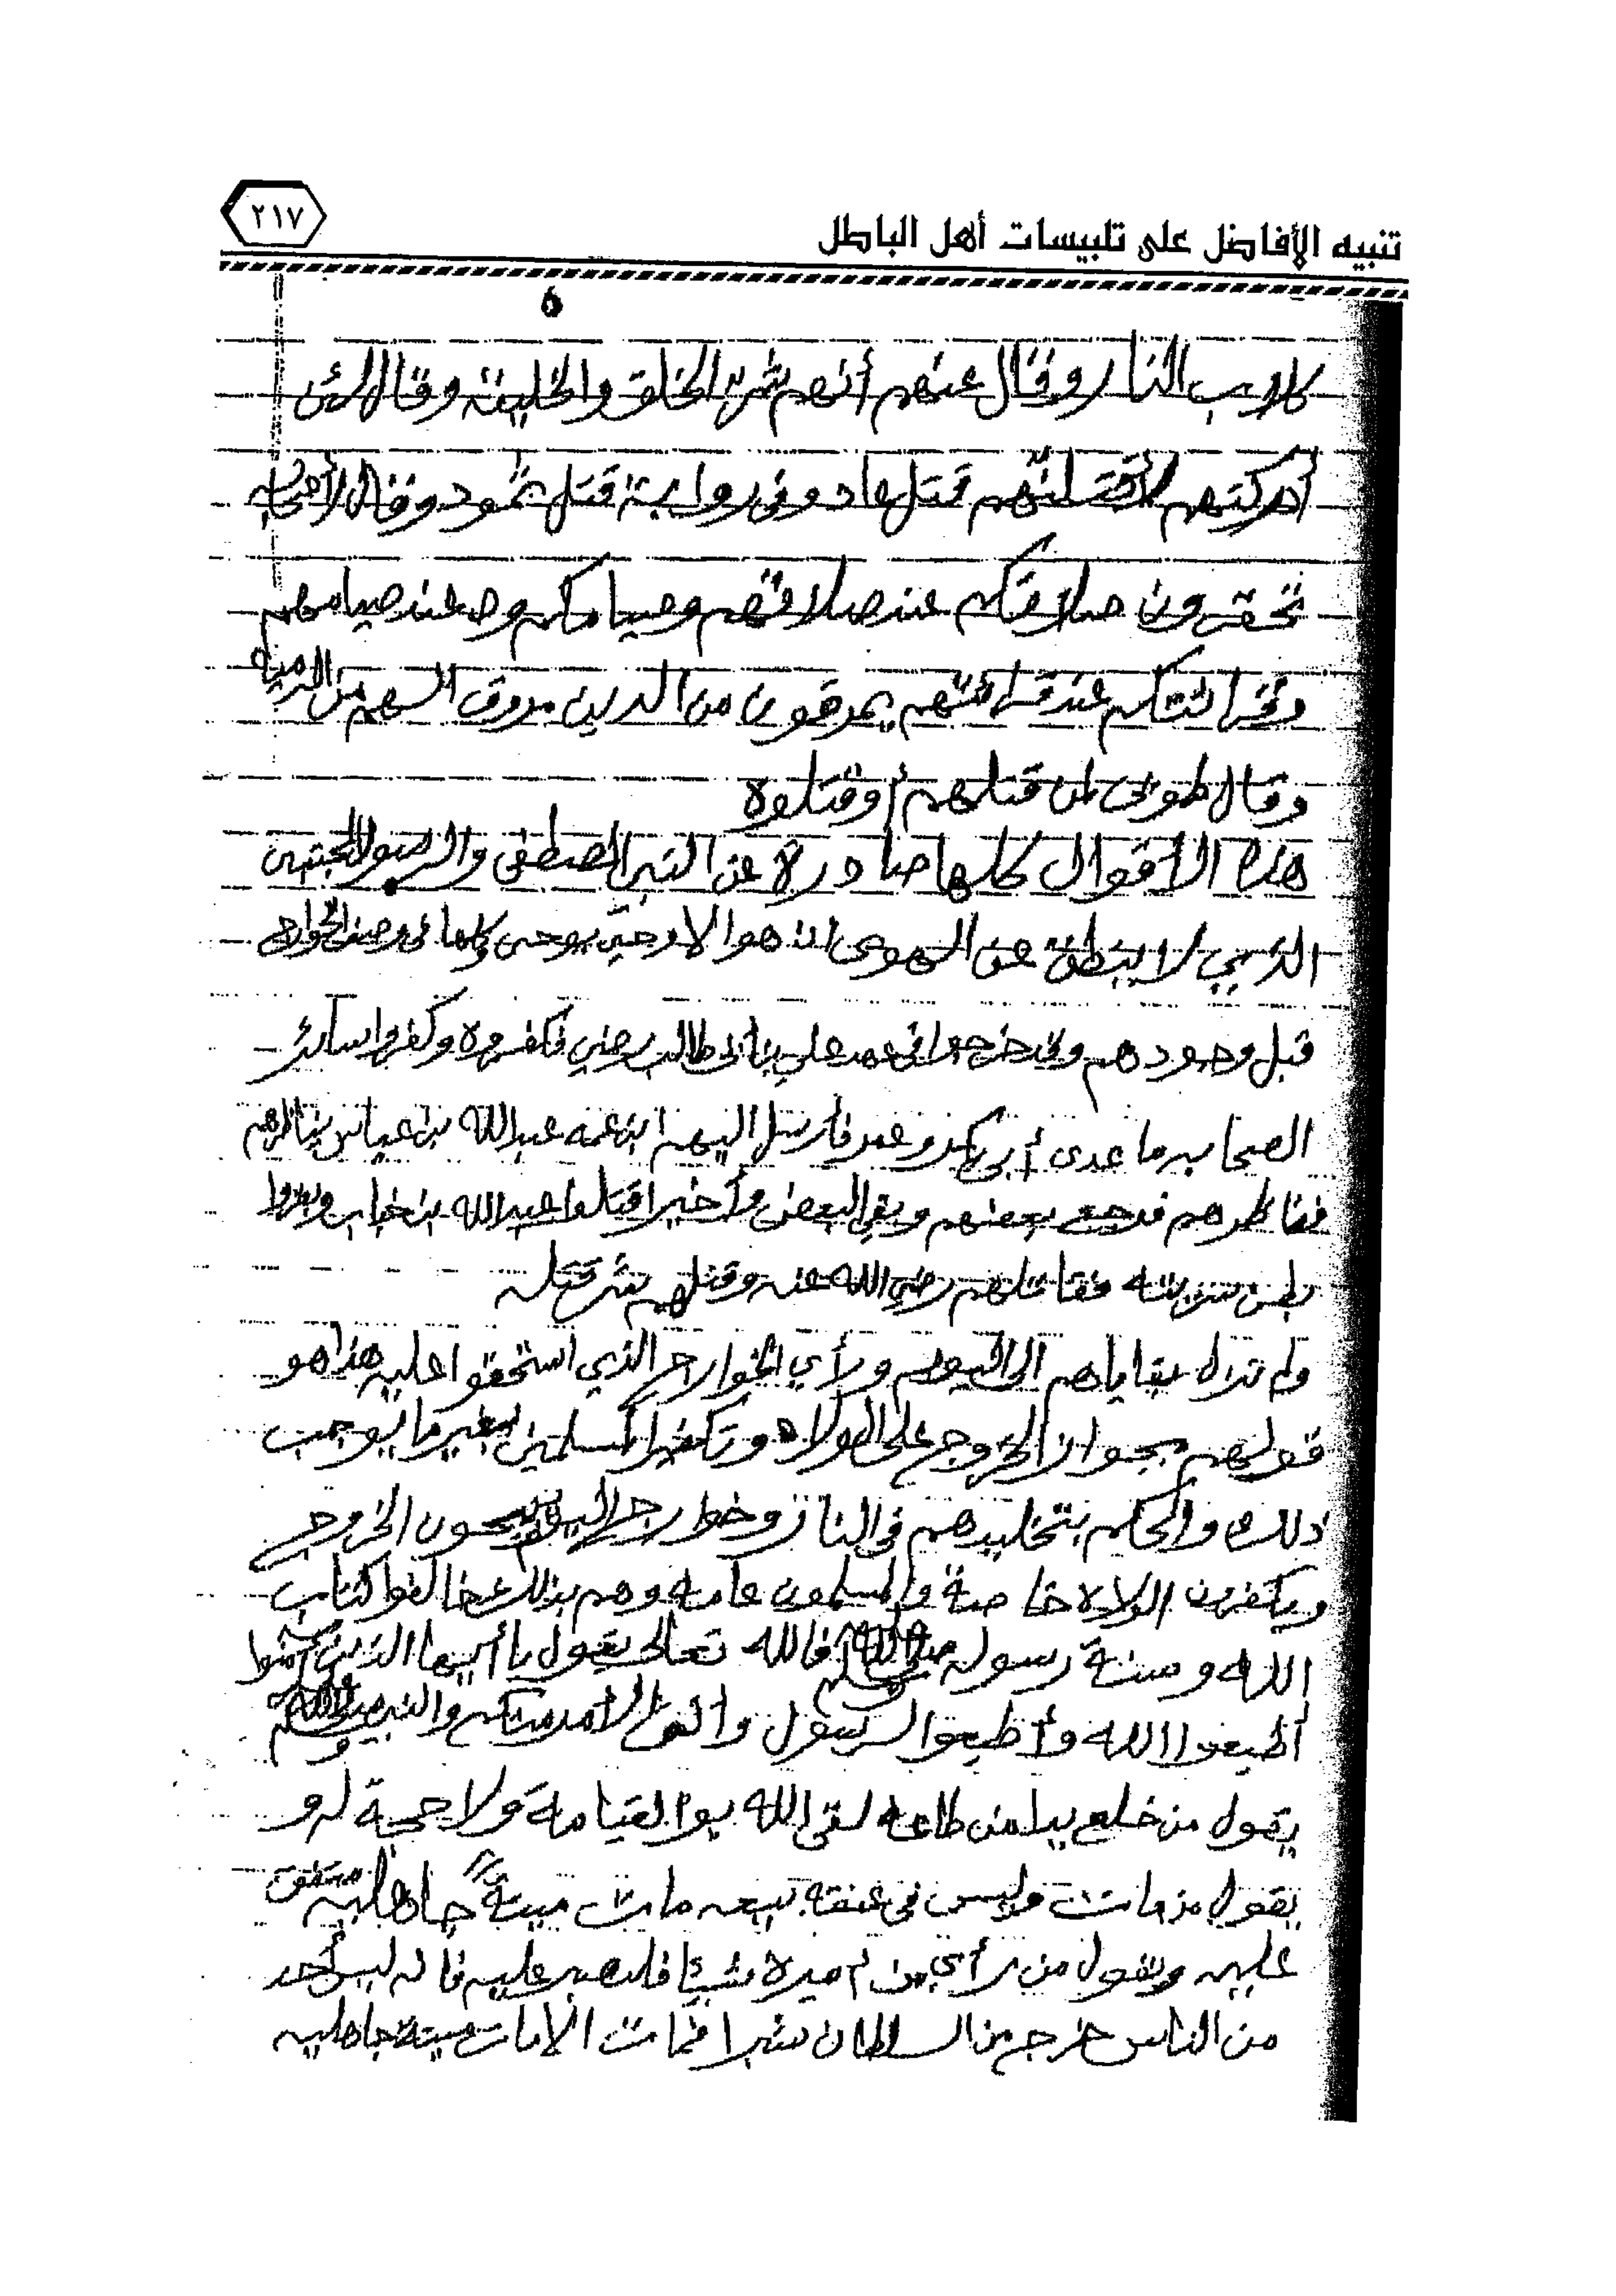 تنبيه الأفاضل على تلبيسات أهل الباطل
٢١٧
٥
كلاب النار وقال عنهم أنهم شر الخلق والخليقة وقال لئن
أدركتهم لأقتلنهم قتل عاد وفي رواية قتل ثمود وقال لأصحابه
تحقرون صلاتكم عند صلاتهم وصيامكم عند صيامهم
وقرائتكم عند قرائتهم يمرقون من الدين مروق السهم من الرمية
وقال طوبى لمن قتلهم أو قتلوه
هذه الأقوال كلها صادرة عن النبي المصطفى والرسول المجتبى
الذي لا ينطق عن الهوى ان هوا الا وحي يوحى كلها في وصف الخوارج
قبل وجودهم وقد خرجوا في عهد علي بن أبي طالب رضي فكفروه وكفروا سائر
الصحابه ما عدى أبي بكر وعمر فأرسل اليهم ابن عمه عبدالله بن عباس يناظرهم
فناظرهم فرجع بعضهم وبقي البعض وأخيرا قتلوا عبدالله بن خباب وبقروا
بطن سريته فقاتلهم رضي الله عنه وقتلهم شر قتله
ولم تزال بقاياهم الى اليوم ورأي الخوارج الذي استحقوا عليه هذا هو
قولهم بجواز الخروج على الولاه وتكفير المسلمين بغير ما يوجب
ذلك والحكم بتخليدهم في النار وخوارج اليوم يبيحون الخروج
ويكفرون الولاه خاصة والمسلمون عامه وهم بذلك خالفوا كتاب
الله وسنة رسوله صلى الله عليه وسلم فالله تعالى يقول يا أيها الذين آمنوا
أطيعوا الله وأطيعوا الرسول وأولي الأمر منكم والنبي صلى الله عليه وسلم
يقول من خلع يدا من طاعه لقي الله يوم القيامة ولا حجة له و
يقول من مات وليس في عنقه بيعه مات ميتةً جاهليه متفق
عليه ويقول من رأى من أميره شيئا فليصبر عليه فانه ليس أحد
من الناس خرج من السلطان شبرا فمات الا مات ميتة جاهليه